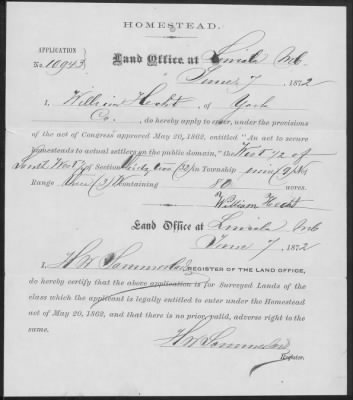 HOMESTEAD.
APPLICATION
No. 10943
Land Office at Lincoln Neb
June 7, 1872
I, William Hecht, of York
Co., do hereby apply to enter, under the provisions
of the act of Congress approved May 20, 1862, entitled "An act to secure
homesteads to actual settlers on the public domain," the West 1/2 of
South West 1/4 of Section (32) in Township nine (9) N
Range three (3) W containing 80 acres.
William Hecht
Land Office at Lincoln Neb
June 7, 1872
I, H W Sommerlad, REGISTER OF THE LAND OFFICE,
do hereby certify that the above application is for Surveyed Lands of the
class which the applicant is legally entitled to enter under the Homestead
act of May 20, 1862, and that there is no prior, valid, adverse right to the
same.
H W Sommerlad
Register.